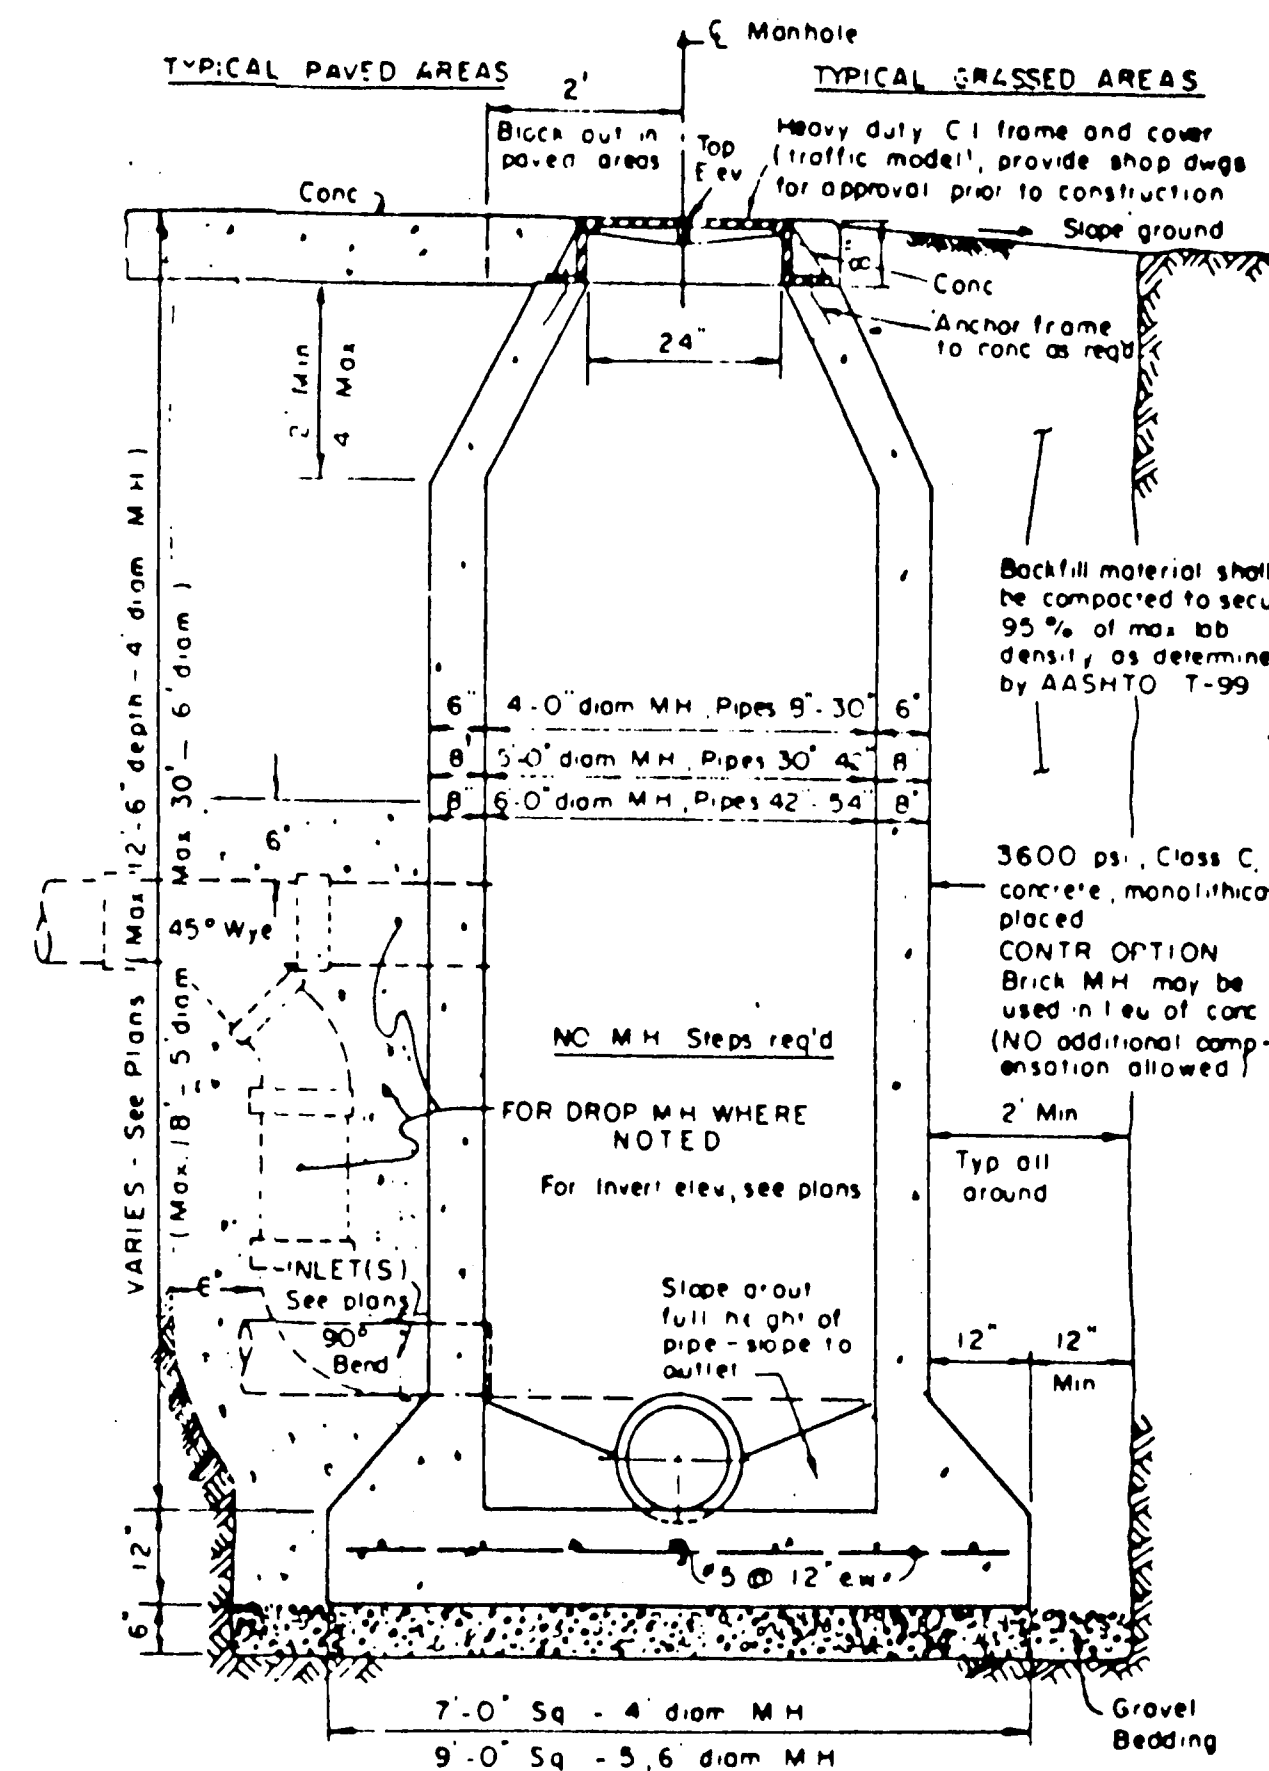 ℄ Manhole
TYPICAL PAVED AREAS
TYPICAL GRASSED AREAS
2'
Block out in
paved areas
Top
Elev
Heavy duty C I frame and cover
(traffic model), provide shop dwgs
for approval prior to construction
Conc
Slope ground
8"
Conc
Anchor frame
to conc as req'd
24"
2' Min
4 Max
VARIES - See Plans (Max 12'-6" depth - 4' diam M H)
(Max. 18' - 5' diam
Max 30' - 6' diam)
Backfill material shall
be compacted to secu
95 % of max lab
density as determine
by AASHTO T-99
6" 4'-0" diam M H, Pipes 8"-30" 6"
8" 5'-0" diam M H, Pipes 30" 42" 8"
8" 6'-0" diam M H, Pipes 42"-54" 8"
6"
45° Wye
3600 psi, Class C,
concrete, monolithica
placed
CONTR OPTION
Brick M H may be
used in lieu of conc
(NO additional comp-
ensation allowed)
NO M H Steps req'd
FOR DROP M H WHERE
NOTED
For Invert elev, see plans
2' Min
Typ all
around
6"
INLET(S)
See plans
90°
Bend
Slope grout
full height of
pipe - slope to
outlet
12"
12"
Min
12"
#5 @ 12" e w
6"
7'-0" Sq - 4' diam M H
9'-0" Sq - 5,6' diam M H
Gravel
Bedding